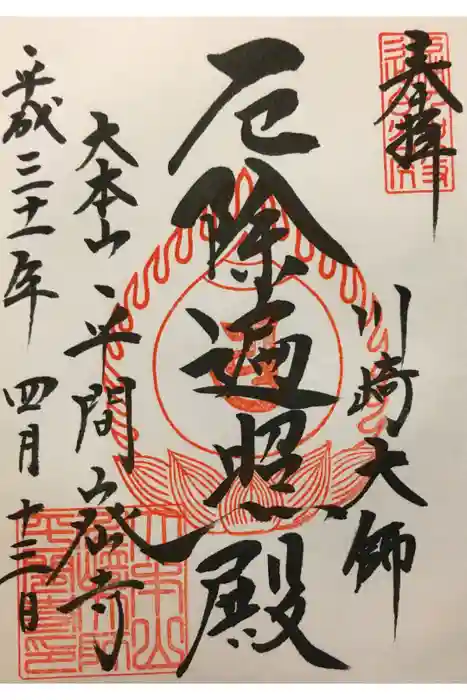 奉拝
川崎大師
厄除遍照殿
大本山 平間 寺
平成三十一年 四月十三日